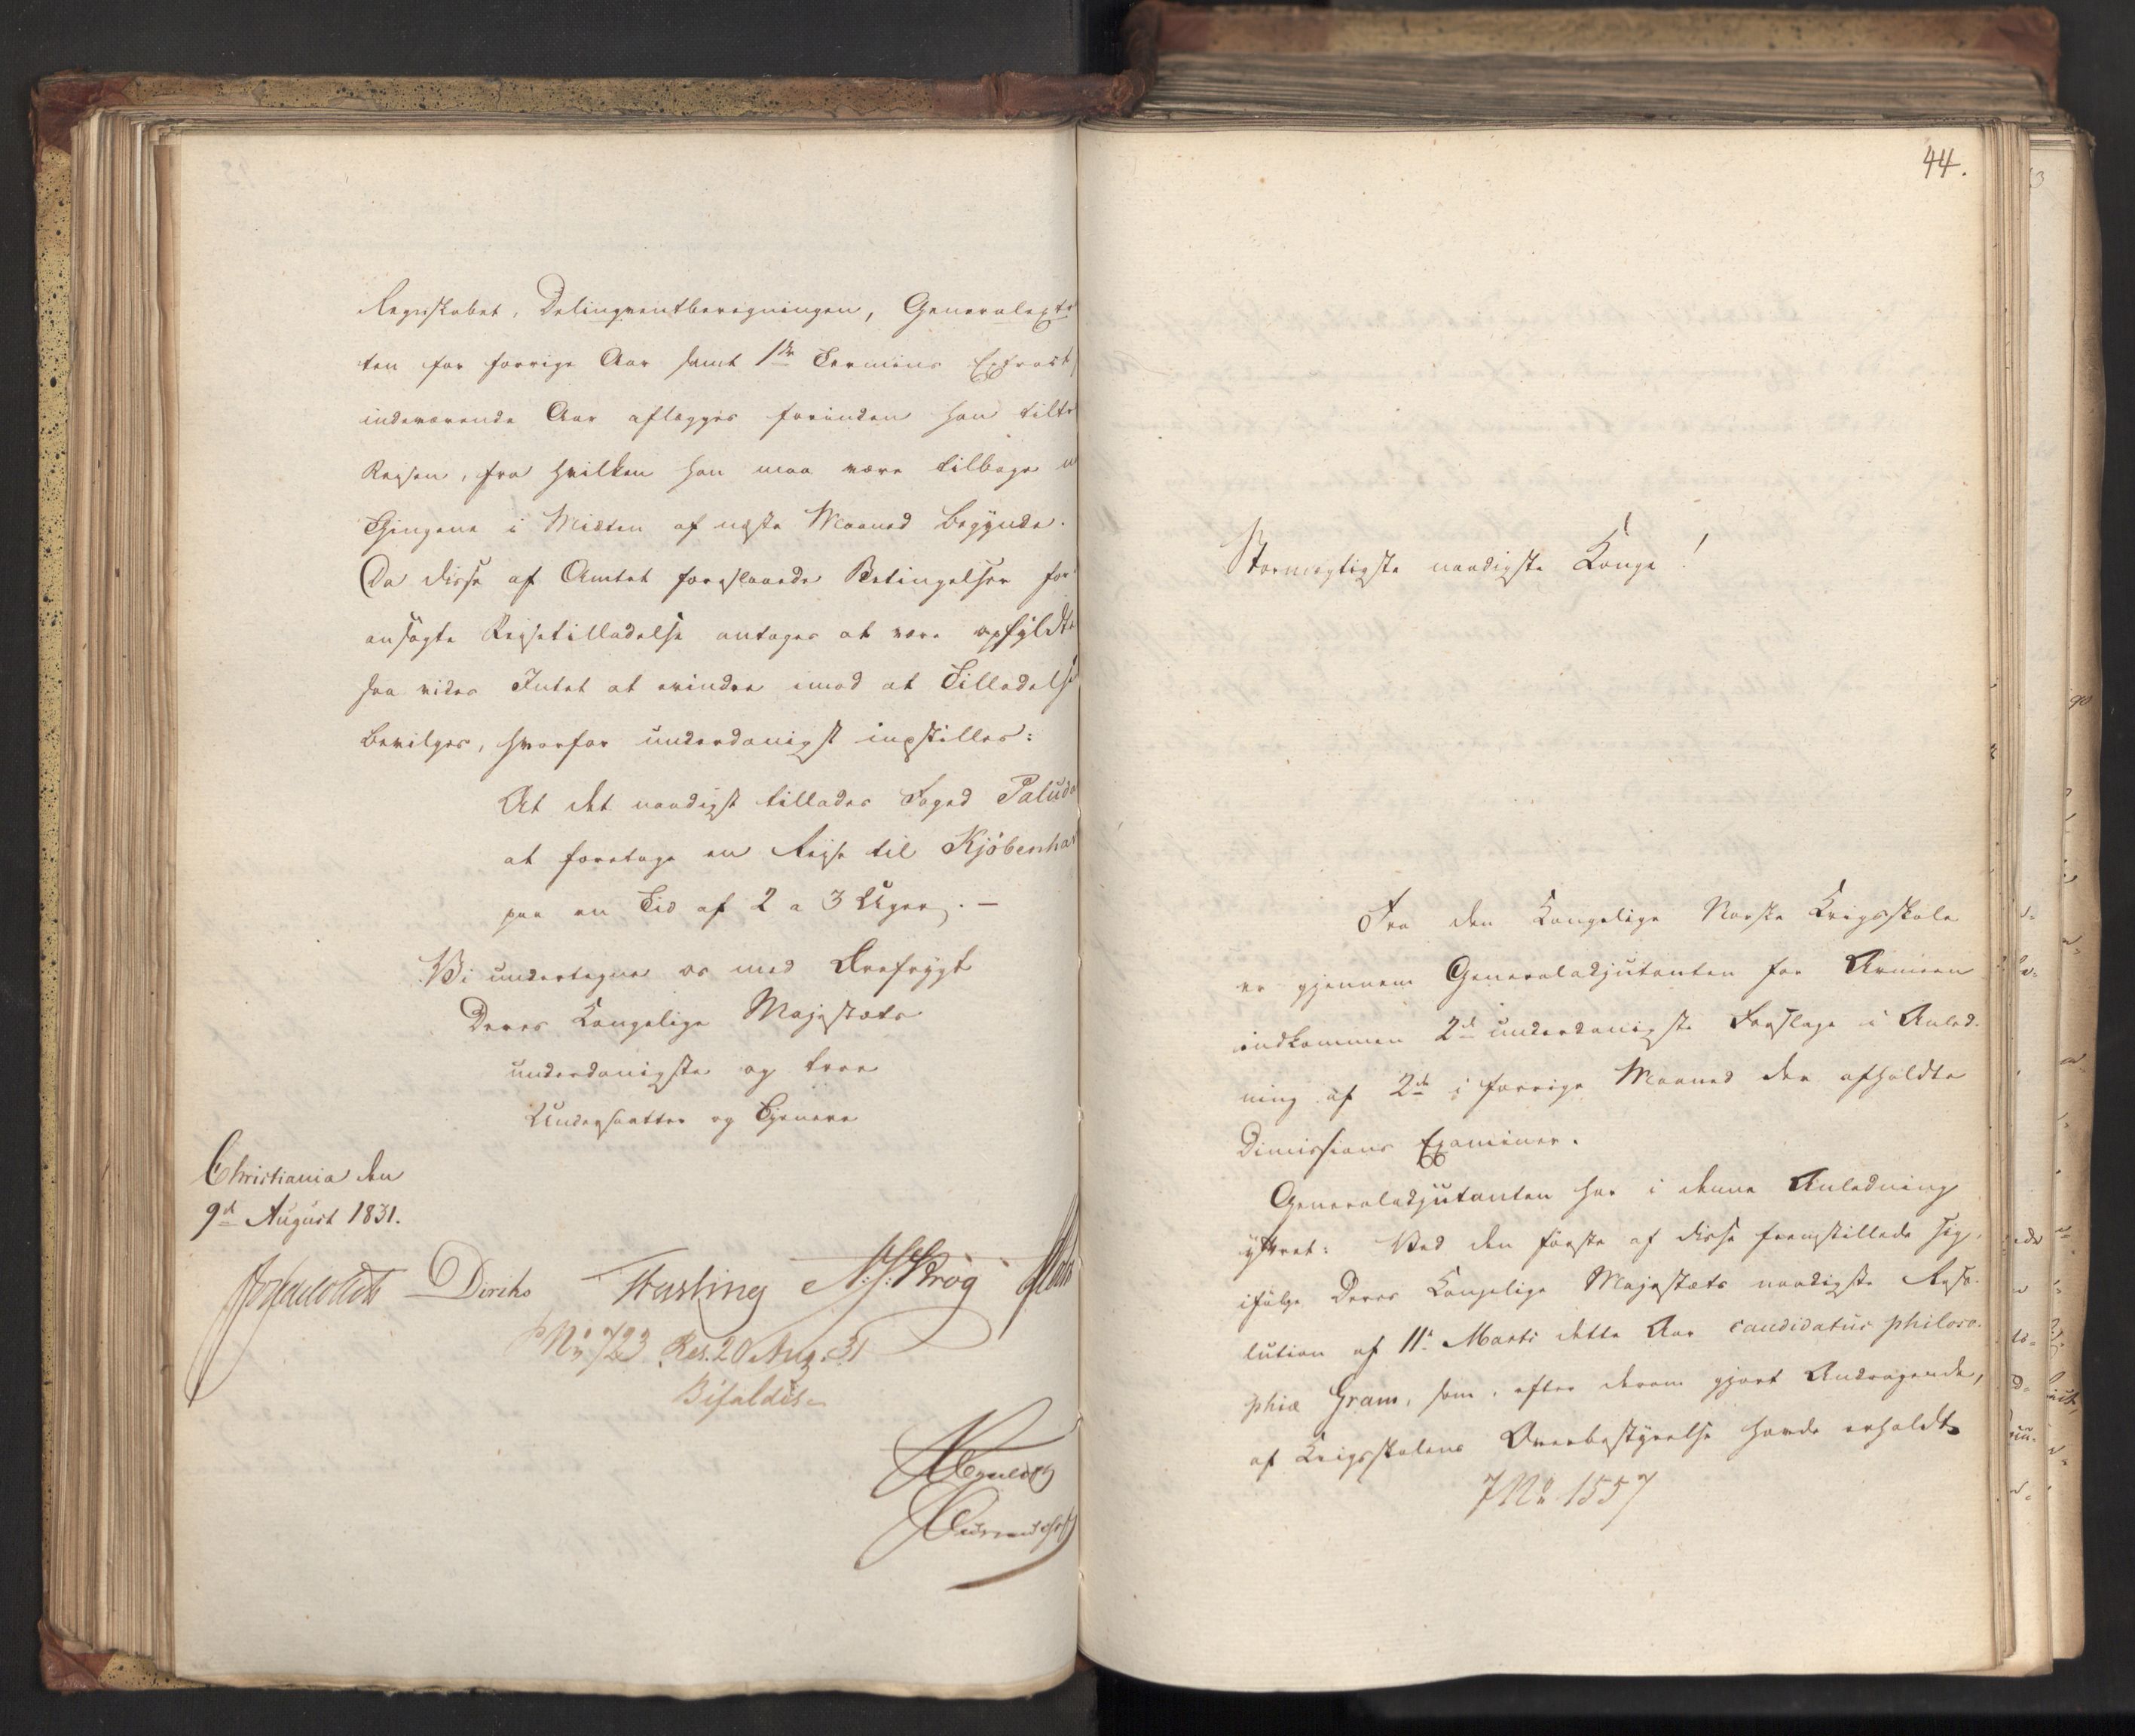 Regnskabet, Delinqventberegningen, Generalextra
ten for forrige Aar samt 1ste Termins Extract
indeværende Aar aflægges forinden han tiltr
Reisen, fra hvilken han maa være tilbage
Thingene i Midten af næste Maaned begynde.
Da disse af Amtet foreslaaede Betingelser for
ansøgte Reisetilladelse antages at være opfyldte
saa vides Intet at erindre imod at Tilladelse
bevilges, hvorfor underdanigst indstilles:
At det naadigst tillades Foged Paluda
at foretage en Reise til Kjøbenhav
paa en Tid af 2 a 3 Uger. —
Vi undertegne os med Ærefrygt
Deres Kongelige Majestæts
underdanigste og troe
Undersaatter og Tjenere
Christiania den
9d August 1831.
Diriks Fasting N. J. Krog
No 723 Res. 20 Aug. 31
Bifaldes
44.
Stormægtigste naadigste Konge!
Fra den Kongelige Norske Krigsskole
er gjennem Generaladjutanten for Armeen
indkommen 2de underdanigste Forslage i Anled-
ning af 2de i forrige Maaned der afholdte
Dimissions Examiner.
Generaladjutanten har i denne Anledning
yttret: Ved den første af disse fremstillede sig,
ifølge Deres Kongelige Majestæts naadigste Reso-
lution af 11te Marts dette Aar candidatus philoso-
phiæ Gram, som, efter derom gjort Andragende,
af Krigsskolens Overbestyrelse havde erholdt
No 1557